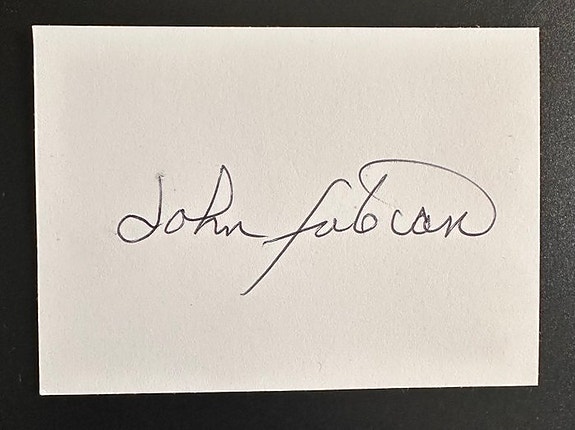 John Fabian